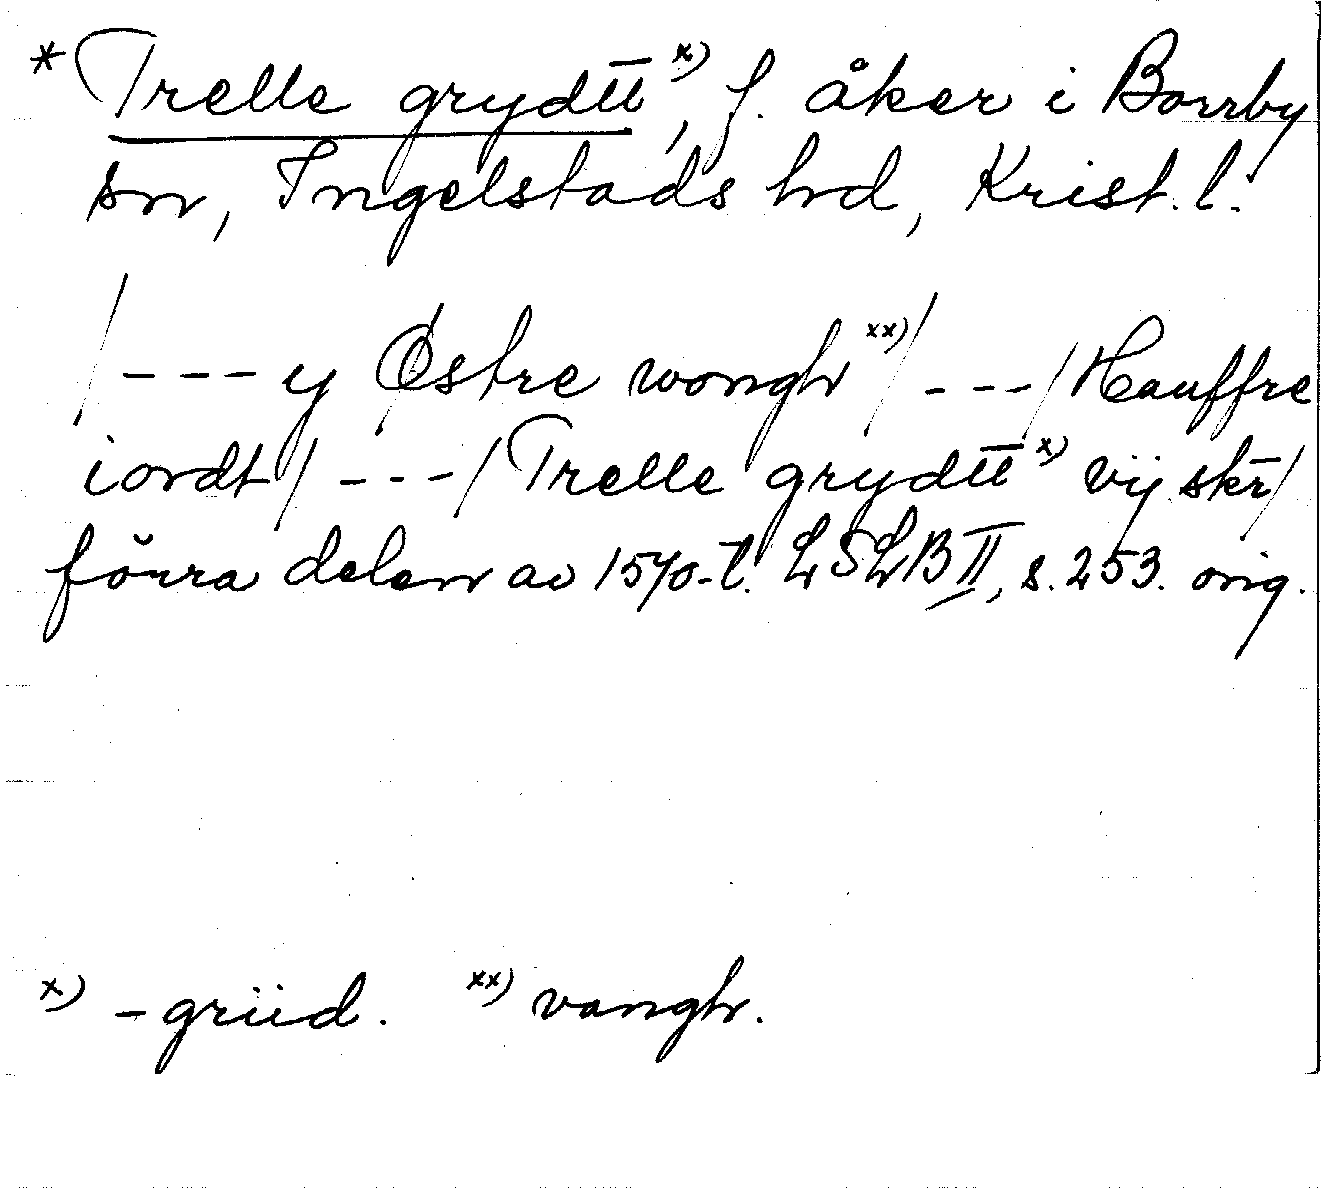 * Trelle grydtt x), f. åker i Borrby
sn, Ingelstads hd, Krist. l.
/---y Østre wongh xx)/---/Hauffre
iordt/---/Trelle grydtt x) vij skr/
förra delen av 1570-t. LSLB II, s. 253. orig.
x) -grüd. xx) vangh.